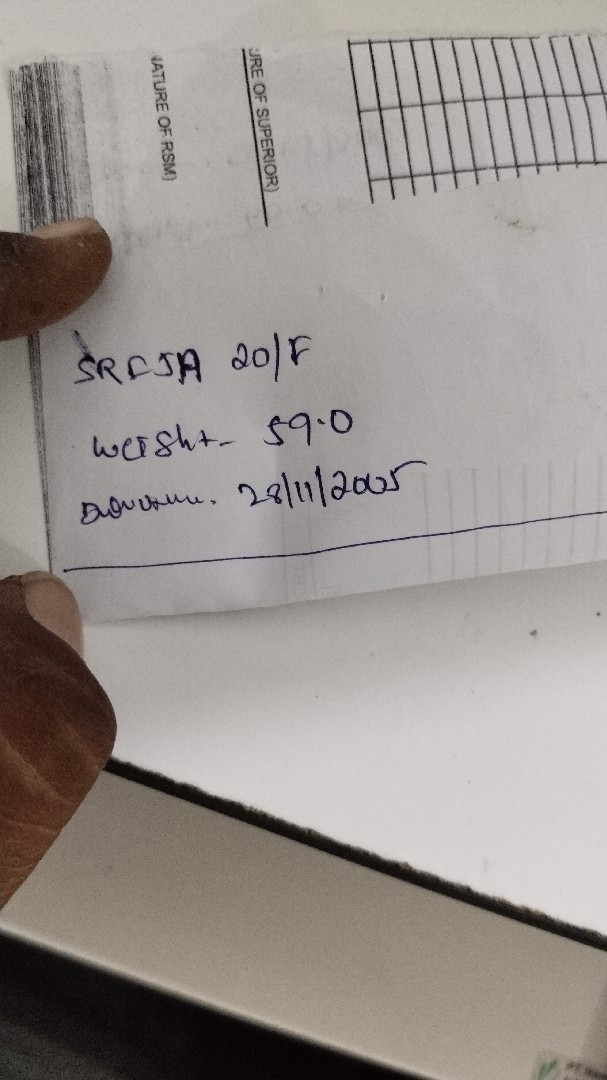 (SIGNATURE OF RSM)
URE OF SUPERIOR)
SREJA 20/F
Weight- 59.0
28/11/2005